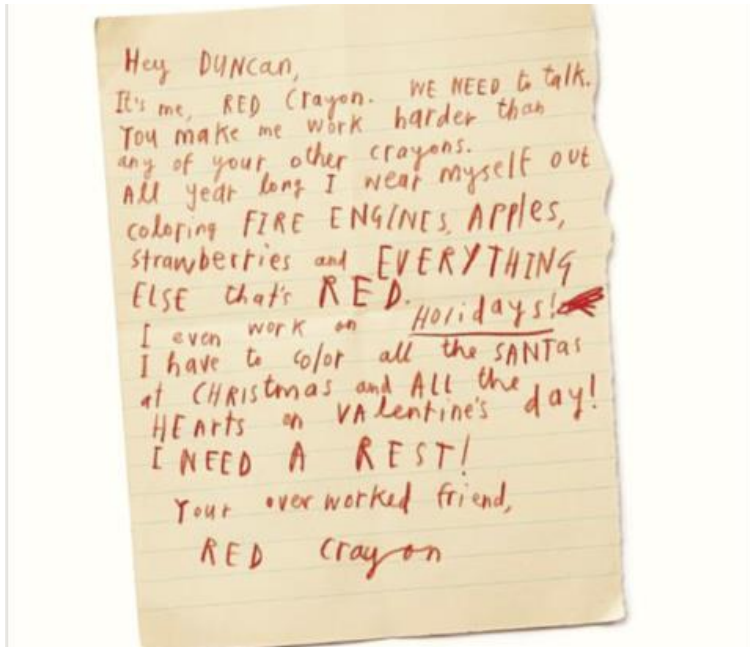 Hey DUNCAN,
It's me, RED Crayon. WE NEED to talk.
You make me work harder than
any of your other crayons.
All year long I wear myself out
coloring FIRE ENGINES, Apples,
strawberries and EVERYTHING
ELSE that's RED.
I even work on Holidays!
I have to color all the SANTAs
at CHRistmas and ALL the
HEArts on VAlentine's day!
I NEED A REST!
Your overworked friend,
RED Crayon